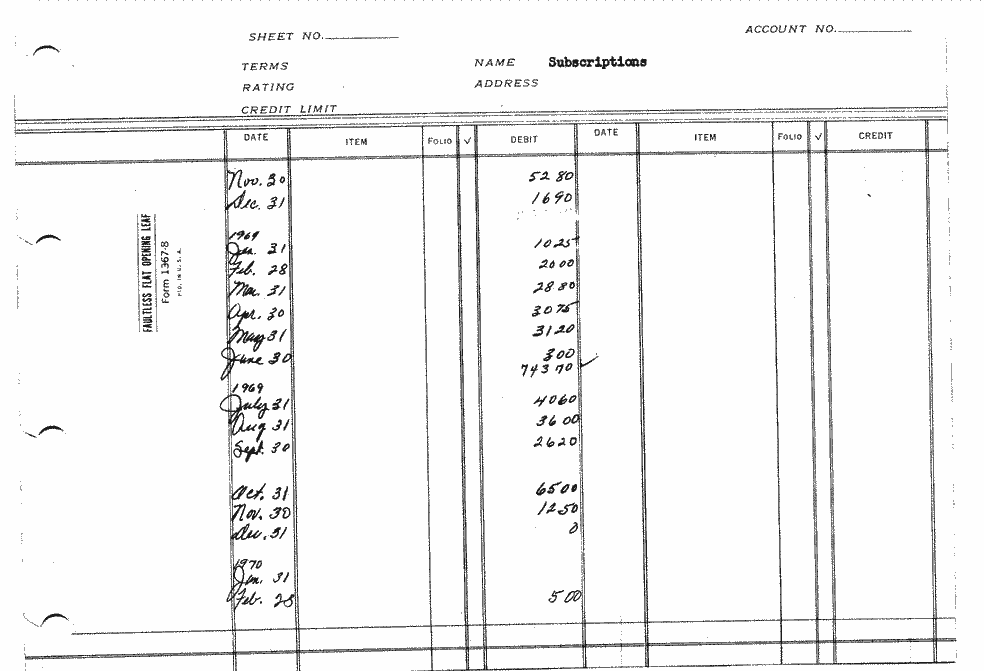 SHEET NO.
ACCOUNT NO.
TERMS
NAME Subscriptions
RATING
ADDRESS
CREDIT LIMIT
DATE ITEM FOLIO √ DEBIT DATE ITEM FOLIO √ CREDIT
Nov. 30 52 80
Dec. 31 16 90
1969
Jan. 31 10 25
Feb. 28 20 00
Mar. 31 28 80
Apr. 30 30 75
May 31 31 20
June 30 3 00
743 70 ✓
1969
July 31 40 60
Aug 31 36 00
Sept. 30 26 20
Oct. 31 65 00
Nov. 30 12 50
Dec. 31 0
1970
Jan. 31
Feb. 28 5 00
FAULTLESS FLAT OPENING LEAF
Form 1367-8
MFD. IN U.S.A.